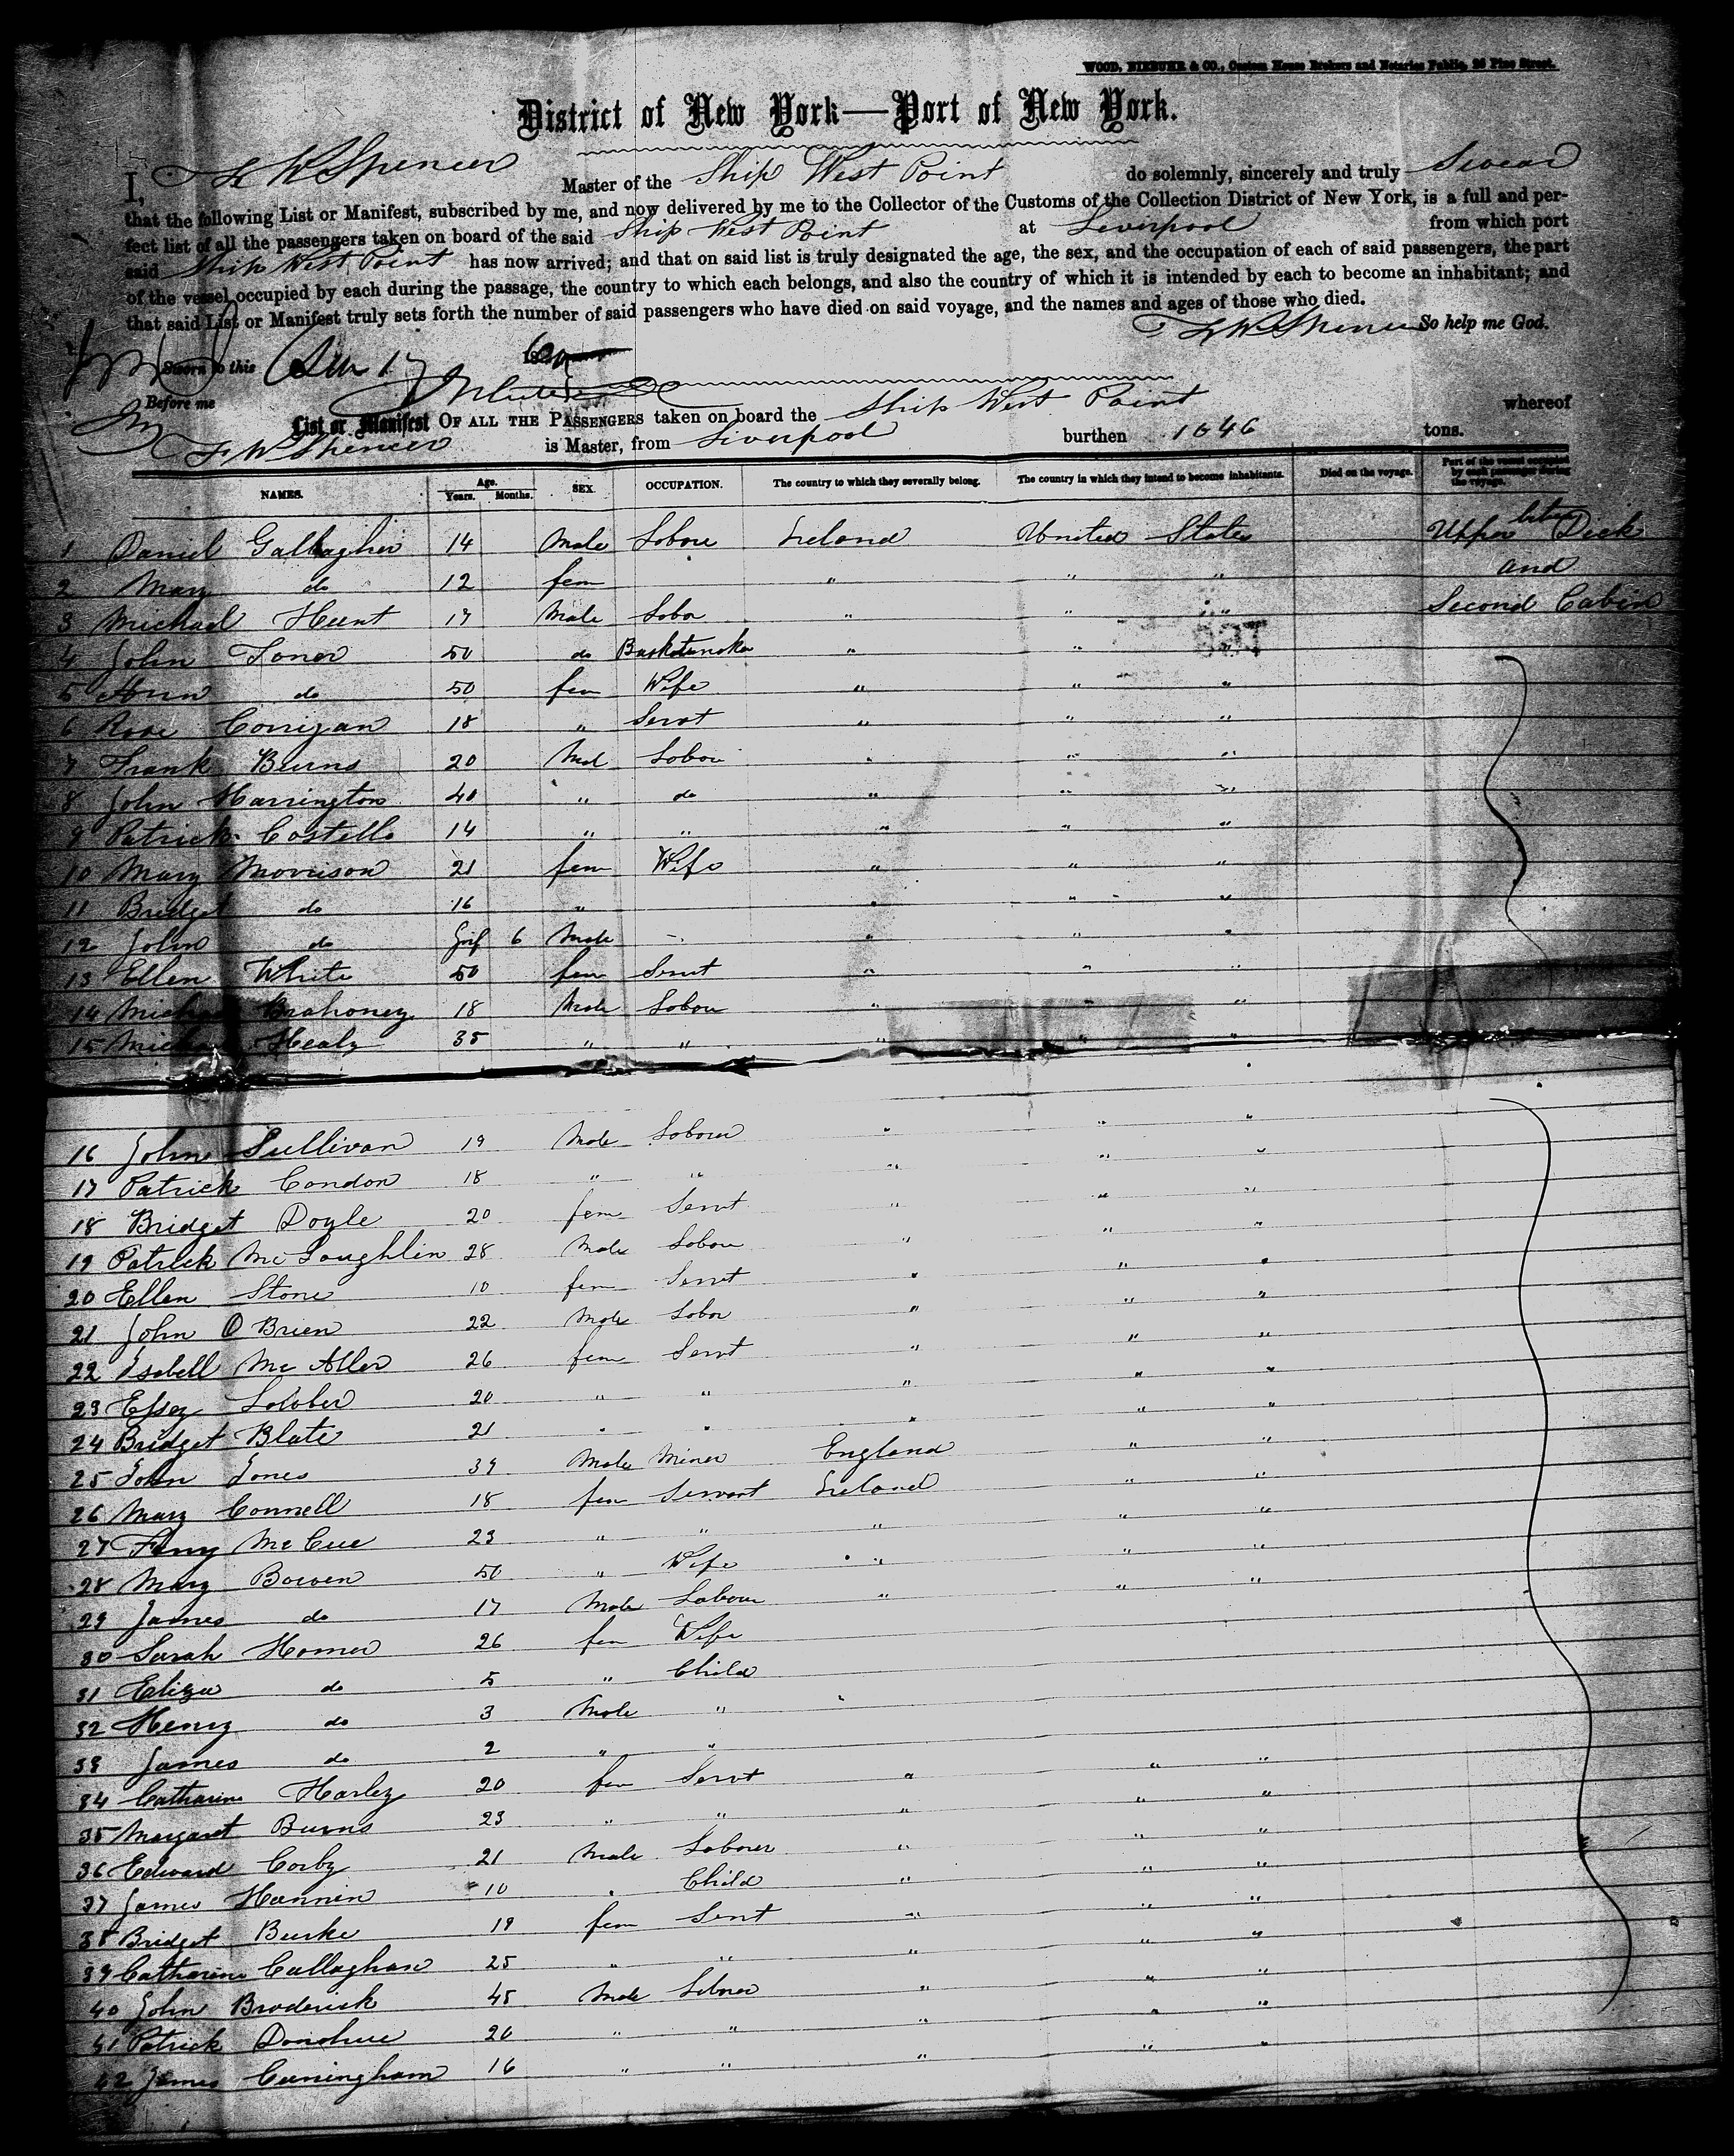 WOOD, NIEBUHR & CO., Custom House Brokers and Notaries Public, 26 Pine Street.
District of New York—Port of New York.
I, F W Spencer Master of the Ship West Point do solemnly, sincerely and truly Swear
that the following List or Manifest, subscribed by me, and now delivered by me to the Collector of the Customs of the Collection District of New York, is a full and per-
fect list of all the passengers taken on board of the said Ship West Point at Liverpool from which port
said Ship West Point has now arrived; and that on said list is truly designated the age, the sex, and the occupation of each of said passengers, the part
of the vessel occupied by each during the passage, the country to which each belongs, and also the country of which it is intended by each to become an inhabitant; and
that said List or Manifest truly sets forth the number of said passengers who have died on said voyage, and the names and ages of those who died.
F W Spencer So help me God.
Sworn to this 17
Before me
List or Manifest OF ALL THE PASSENGERS taken on board the Ship West Point whereof
F W Spencer is Master, from Liverpool burthen 1046 tons.
NAMES. Age. Years. Months. SEX. OCCUPATION. The country to which they severally belong. The country in which they intend to become inhabitants. Died on the voyage. Part of the vessel occupied by each passenger during the voyage.
1 Daniel Gallagher 14 Male Labore Ireland United States Upper Deck
2 Mary do 12 fem " " " and
3 Michael Hunt 17 Male Labor " " " Second Cabin
4 John Toner 50 do Basketmaker " " "
5 Ann do 50 fem Wife " " "
6 Rose Corrigan 18 " Servt " " "
7 Frank Burns 20 Mal Labou " " "
8 John Harrington 40 " do " " "
9 Patrick Costello 14 " " " " "
10 Mary Morrison 21 fem Wife " " "
11 Bridget do 16 " " " "
12 John do Inf 6 Male - " " "
13 Ellen White 50 fem Servt " " "
14 Michael Mahoney 18 Male Labou " " "
15 Michael Healy 35 " " " " "
16 John Sullivan 19 Male Labour " " "
17 Patrick Condon 18 " " " " "
18 Bridget Doyle 20 fem Servt " " "
19 Patrick McLoughlin 28 Male Labou " " "
20 Ellen Stone 10 fem Servt " " "
21 John O Brien 22 Male Labor " " "
22 Isabell Mc Aller 26 fem Servt " " "
23 Essey 20 " " " " "
24 Bridget Blate 21 " " " " "
25 John Jones 39 Male Miner England " "
26 Mary Connell 18 fem Servant Ireland " "
27 Mc Cue 23 " " " " "
28 Mary Bowen 50 " Wife " " "
29 James do 17 Male Labour " " "
30 Sarah Homer 26 fem Wife
31 Eliza do 5 " Child
32 Henry do 3 Male " "
33 James do 2 " "
34 Catharine Harley 20 fem Servt " " "
35 Margaret Burns 23 " " " " "
36 Edward Corby 21 Male Labourer " " "
37 James Hannin 10 " Child " " "
38 Bridget Burke 19 fem Servt " " "
39 Catharine Callaghan 25 " " " " "
40 John Broderick 45 Male Laborer " " "
41 Patrick Donohue 20 " " " " "
42 James Cuningham 16 " " " " "